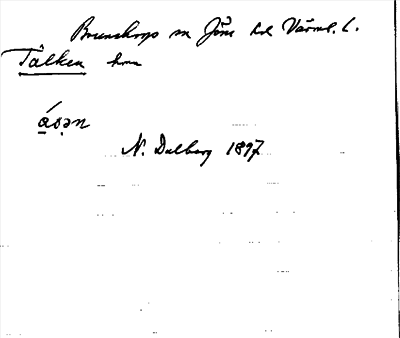 Brunskogs sn Jösse hd Värml. l.
Tälken hmn
N. Dalberg 1897